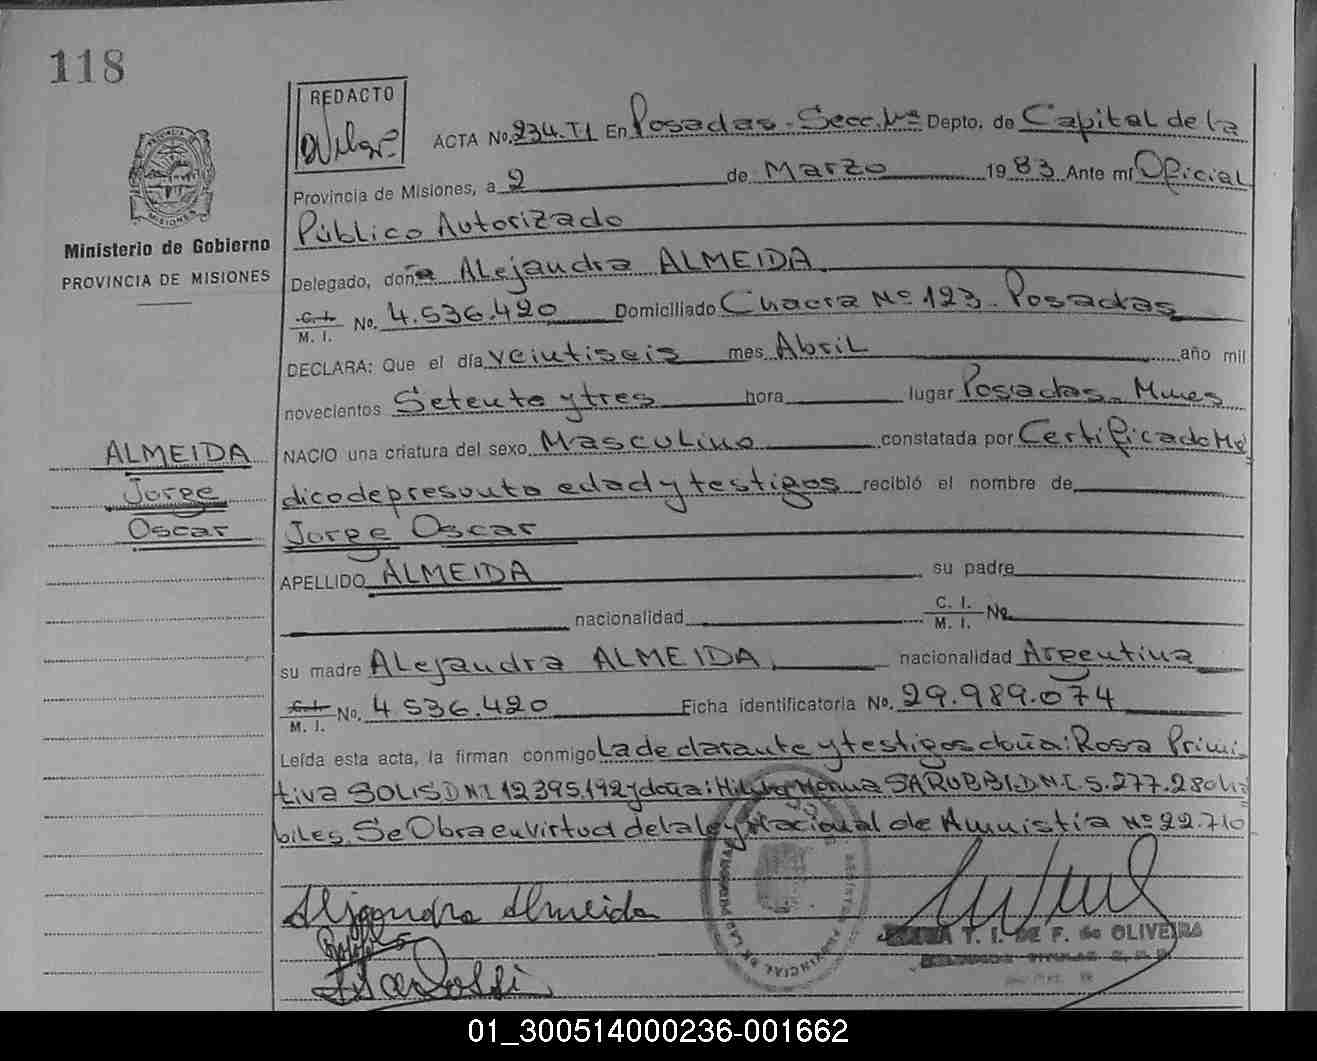 118
REDACTO
ACTA No. 234.T1 En Posadas - Secc. 1ª Depto. de Capital de la
Provincia de Misiones, a 2 de Marzo 1983 Ante mí Oficial
Público Autorizado
MISIONES
Ministerio de Gobierno
PROVINCIA DE MISIONES
Delegado, doña Alejandra ALMEIDA
C. I.
M. I. No. 4.536.420 Domiciliado Chacra Nº 123 - Posadas
DECLARA: Que el día veintiseis mes Abril año mil
novecientos Setenta y tres hora lugar Posadas - Mnes
NACIO una criatura del sexo Masculino constatada por Certificado Mé
dico de presunta edad y testigos recibió el nombre de
Jorge Oscar
ALMEIDA
Jorge
Oscar
APELLIDO ALMEIDA su padre
nacionalidad C. I. M. I. No.
su madre Alejandra ALMEIDA nacionalidad Argentina
C. I.
M. I. No. 4.536.420 Ficha identificatoria No. 29.989.074
Leída esta acta, la firman conmigo La declarante y testigos doña: Rosa Primi-
tiva SOLIS DNI 12.395.192 y doña: SARUBBI D.N.I. 5.277.280 há
biles. Se Obra en virtud de la ley Nacional de Amnistia Nº 22.710
Alejandra Almeida
T. I. DE F. de OLIVEIRA
01_300514000236-001662